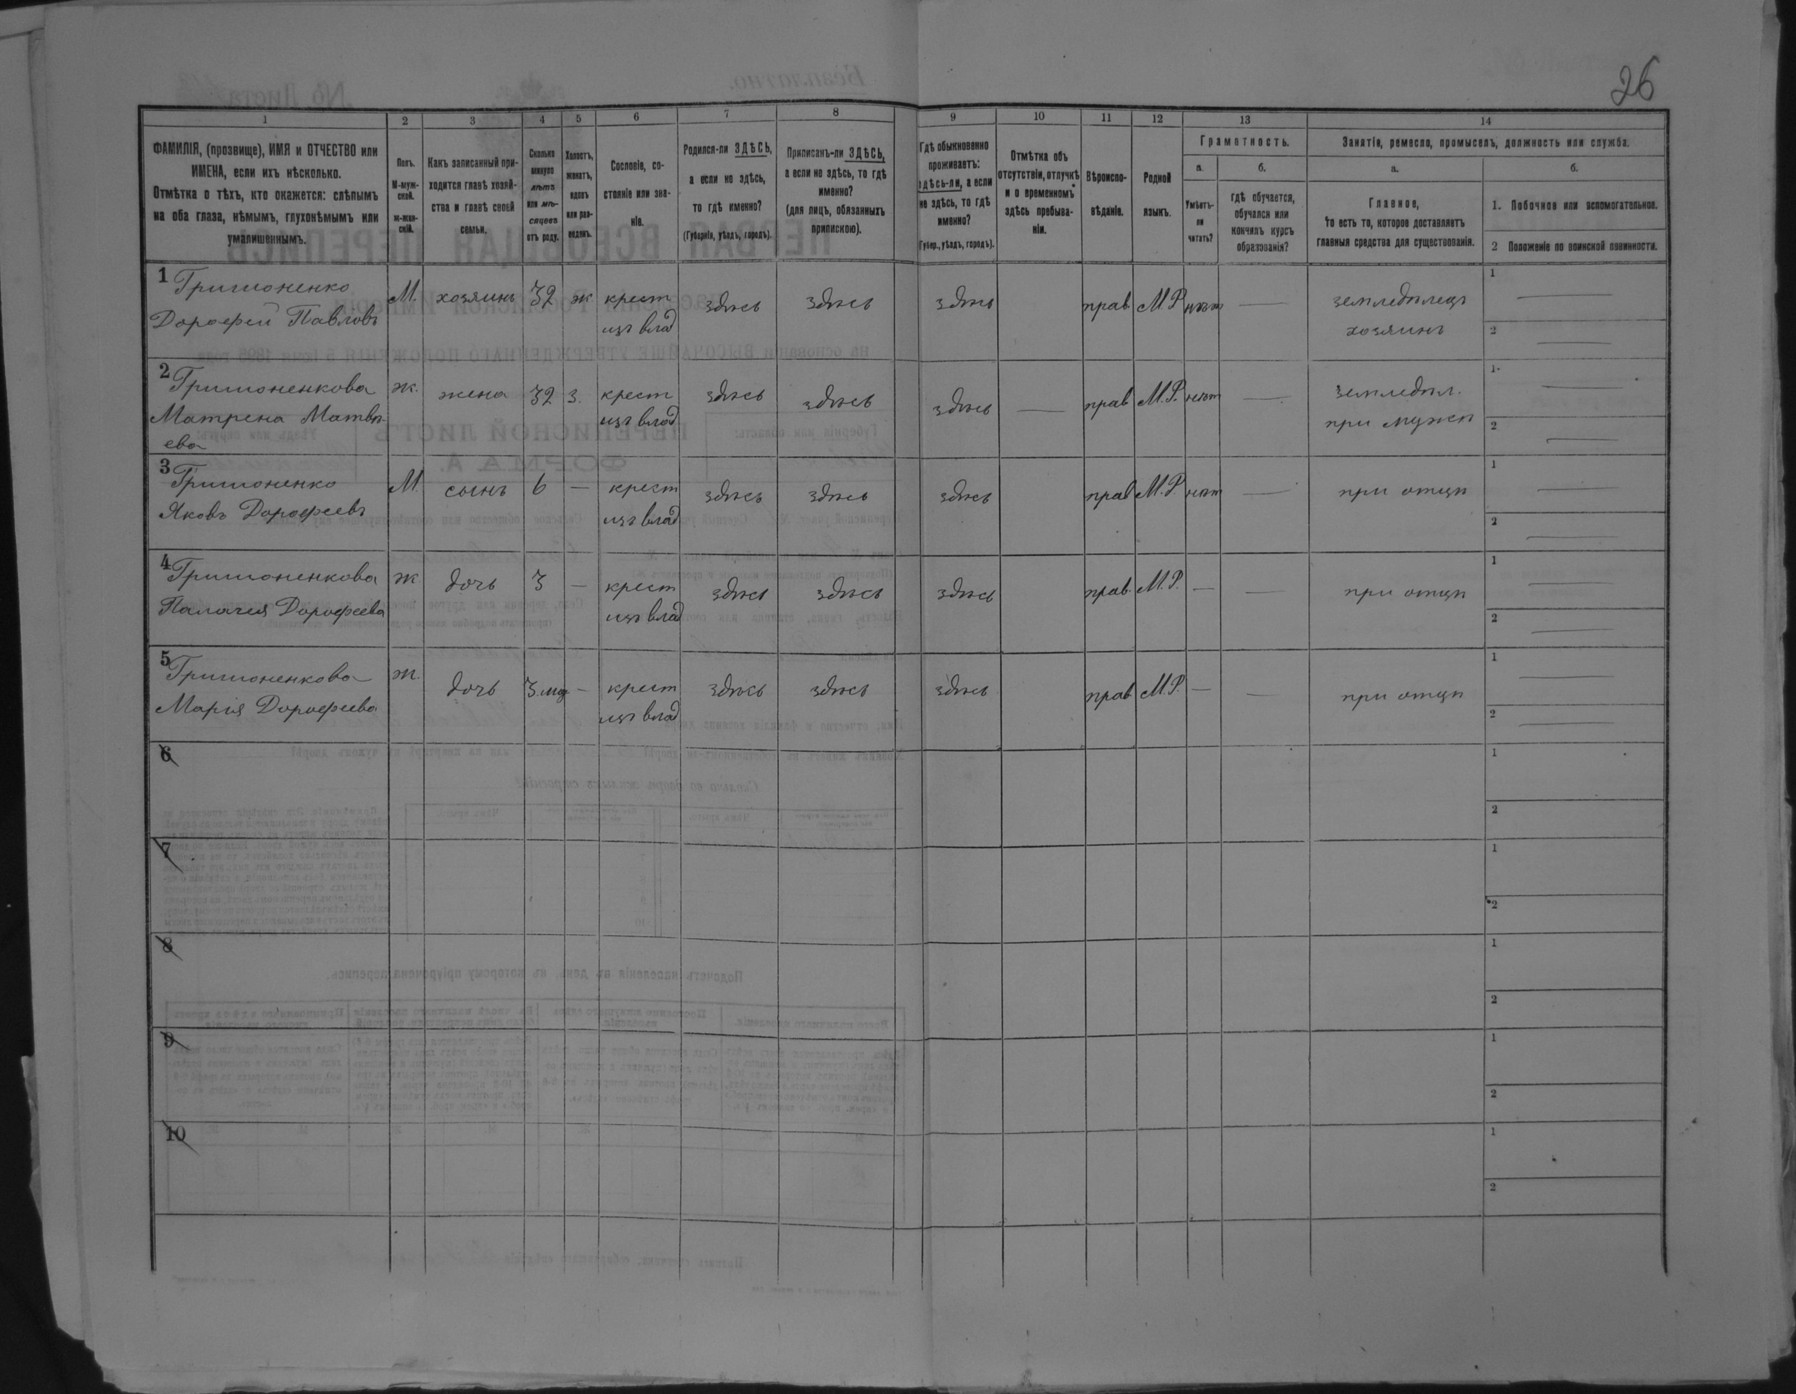 26
1 2 3 4 5 6 7 8 9 10 11 12 13 14
ФАМИЛІЯ, (прозвище), ИМЯ и ОТЧЕСТВО или
ИМЕНА, если ихъ нѣсколько.
Отмѣтка о тѣхъ, кто окажется: слѣпымъ
на оба глаза, нѣмымъ, глухонѣмымъ или
умалишеннымъ.
Полъ.
М-муж-
ской.
ж-жен-
скій.
Какъ записанный при-
ходится главѣ хозяй-
ства и главѣ своей
семьи.
Сколько
минуло
лѣтъ
или мѣ-
сяцевъ
отъ роду.
Холостъ,
женатъ,
вдовъ
или раз-
веденъ.
Сословіе, со-
стояніе или зва-
ніе.
Родился-ли ЗДѢСЬ,
а если не здѣсь,
то гдѣ именно?
(Губернія, уѣздъ, городъ).
Приписанъ-ли ЗДѢСЬ,
а если не здѣсь, то гдѣ
именно?
(для лицъ, обязанныхъ
припискою).
Гдѣ обыкновенно
проживаетъ:
здѣсь-ли, а если
не здѣсь, то гдѣ
именно?
(Губер., уѣздъ, городъ).
Отмѣтка объ
отсутствіи, отлучкѣ
и о временномъ
здѣсь пребыва-
ніи.
Вѣроиспо-
вѣданіе.
Родной
языкъ.
Грамотность.
а.
Умѣетъ-
ли
читать?
б.
Гдѣ обучается,
обучался или
кончилъ курсъ
образованія?
Занятіе, ремесло, промыселъ, должность или служба.
а.
Главное,
то есть то, которое доставляетъ
главныя средства для существованія.
б.
1. Побочное или вспомогательное.
2 Положеніе по воинской повинности.
1 Гришоненко
Дорофей Павловъ
М. хозяинъ 32 ж крест
изъ влад
здѣсь здѣсь здѣсь прав М.Р. нѣтъ —
земледѣлецъ
хозяинъ
1 —
2 —
2 Гришоненкова
Матрена Матвѣ-
ева
ж. жена 32 з. крест
изъ влад
здѣсь здѣсь здѣсь — прав М.Р. нѣт —
земледѣл.
при мужѣ
1 —
2 —
3 Гришоненко
Яковъ Дорофеевъ
М. сынъ 6 — крест
изъ влад
здѣсь здѣсь здѣсь прав М.Р. нѣт —
при отцѣ
1 —
2 —
4 Гришоненкова
Палагея Дорофеева
ж дочь 3 — крест
изъ влад
здѣсь здѣсь здѣсь прав. М.Р. — —
при отцѣ
1 —
2 —
5 Гришоненкова
Марія Дорофеева
ж. дочь 3 мѣс — крест
изъ влад
здѣсь здѣсь здѣсь прав М.Р. — —
при отцѣ
1 —
2 —
6
1
2
7
1
2
8
1
2
9
1
2
10
1
2